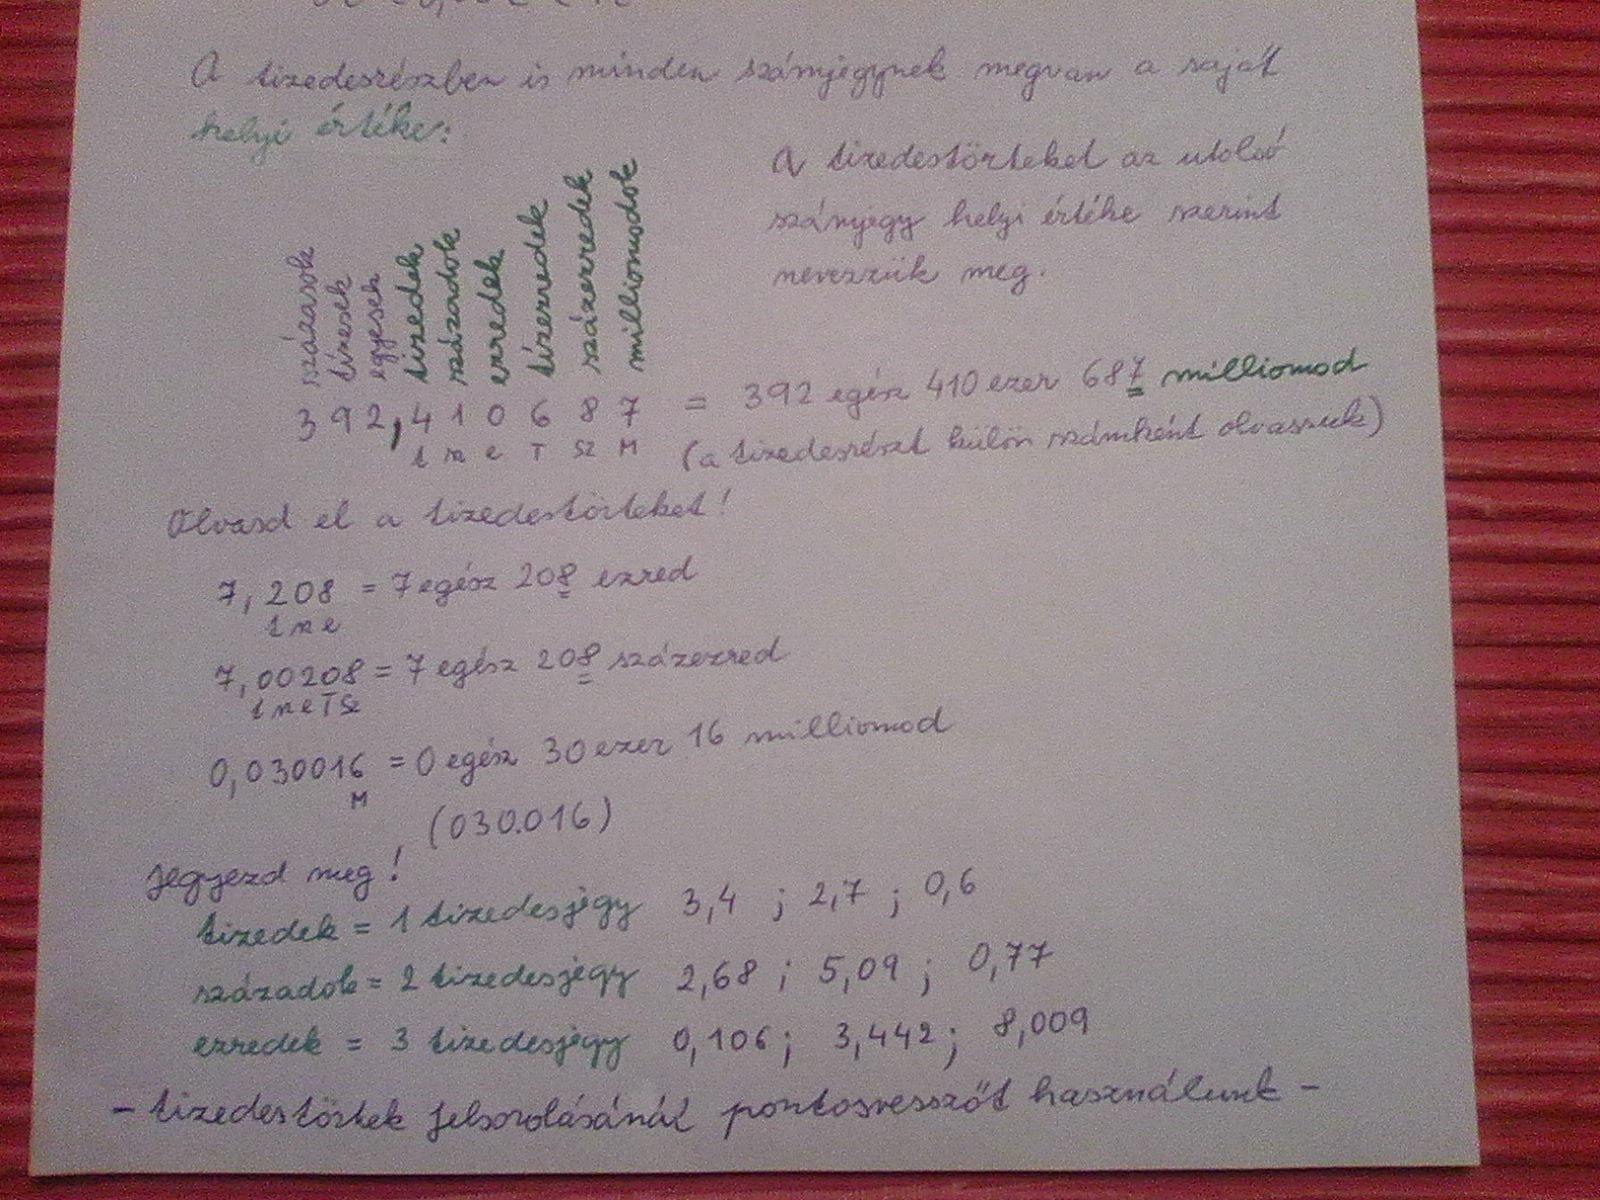 A tizedesrészben is minden számjegynek megvan a saját
helyi értéke:
A tizedestörteket az utolsó
számjegy helyi értéke szerint
nevezzük meg.
százasok
tízesek
egyesek
tizedek
századok
ezredek
tízezredek
százezredek
milliomodok
392,410687 = 392 egész 410 ezer 687 milliomod
t sz e T SZ M (a tizedesrészt külön számként olvassuk)
Olvasd el a tizedestörteket!
7,208 = 7 egész 208 ezred
t sz e
7,00208 = 7 egész 208 százezred
t sz e T Sz
0,030016 = 0 egész 30 ezer 16 milliomod
M
(030.016)
Jegyezd meg!
tizedek = 1 tizedesjegy 3,4 ; 2,7 ; 0,6
századok = 2 tizedesjegy 2,68 ; 5,09 ; 0,77
ezredek = 3 tizedesjegy 0,106 ; 3,442 ; 8,009
- tizedestörtek felsorolásánál pontosvesszőt használunk -